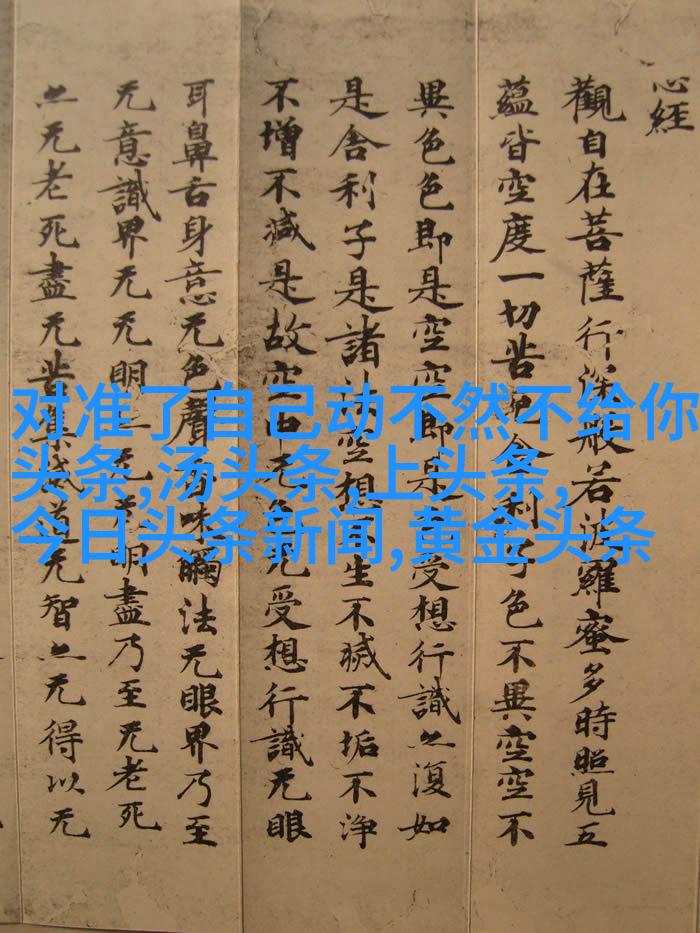 心経
觀自在菩薩行深般若波羅蜜多時照見五
蘊皆空度一切苦厄舍利子色不異空空不
異色色即是空空即是色受想行識亦復如
是舍利子是諸法空想不生不滅不垢不淨
不增不減是故空中无色无受想行識无眼
耳鼻舌身意无色聲香味觸法无眼界乃至
无意識界无无明亦无无明盡乃至无老死
亦无老死盡无苦集滅道无智亦无得以无
对准了自己动不然不给你
头条,汤头条,上头条,
今日头条新闻,黄金头条